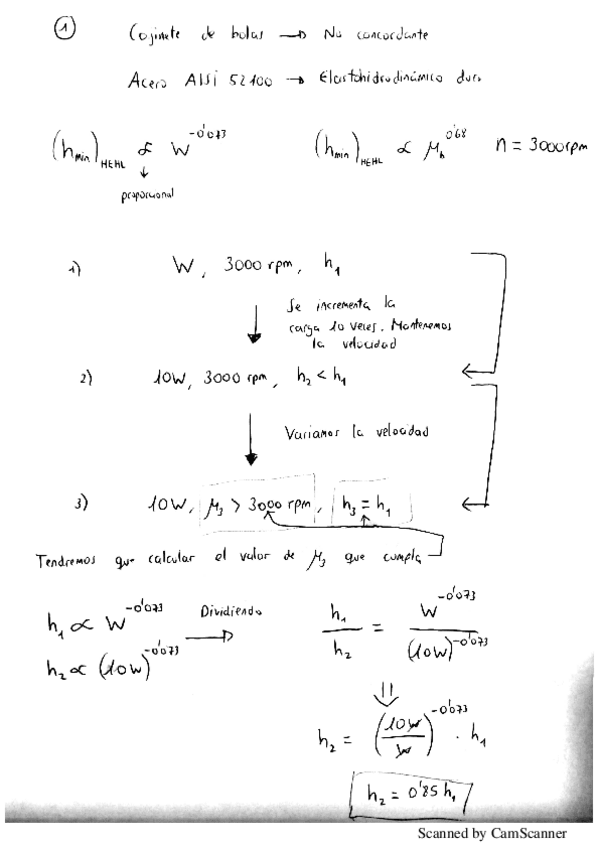 ① Cojinete de bolas → No concordante
Acero AISI 52100 → Elastohidrodinámico duro
(h_min)_HEHL ∝ W^-0'073 (h_min)_HEHL ∝ μ_b^0'68 n = 3000rpm
↓
proporcional
1) W, 3000 rpm, h₁
Se incrementa la
carga 10 veces. Mantenemos
la velocidad
2) 10W, 3000 rpm, h₂ < h₁
Variamos la velocidad
3) 10W, μ₃ > 3000 rpm, h₃ = h₁
Tendremos que calcular el valor de μ₃ que cumpla
h₁ ∝ W^-0'073 Dividiendo → h₁/h₂ = W^-0'073/(10W)^-0'073
h₂ ∝ (10W)^-0'073
⇓
h₂ = (10W/W)^-0'073 · h₁
h₂ = 0'85 h₁
Scanned by CamScanner